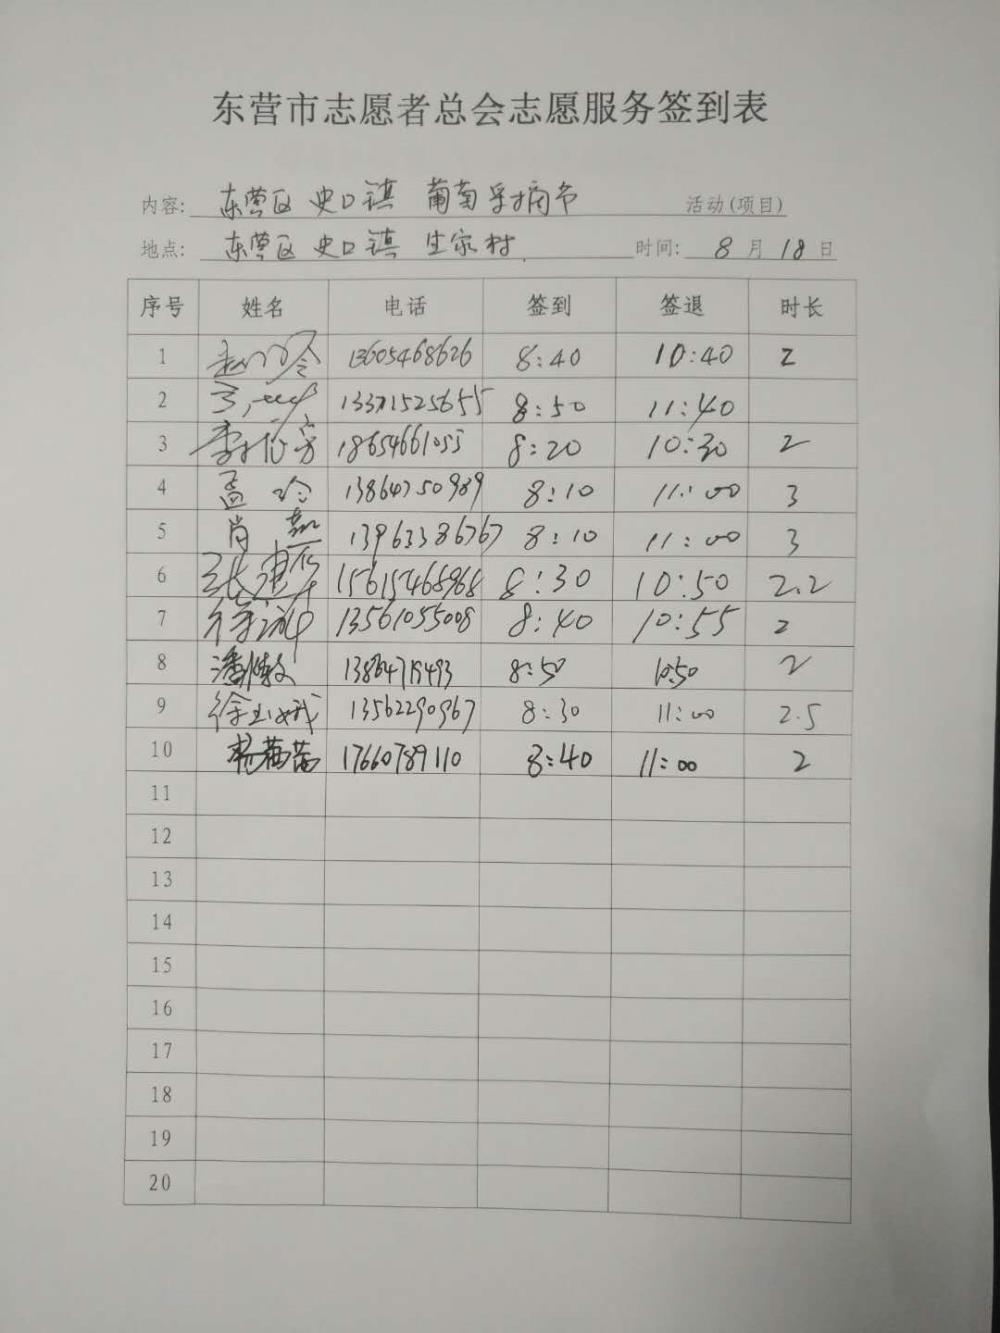 东营市志愿者总会志愿服务签到表
内容: 东营区 史口镇 葡萄采摘节 活动(项目)
地点: 东营区 史口镇 生家村 时间: 8月18日
序号 姓名 电话 签到 签退 时长
1 13605468626 8:40 10:40 2
2 13371525655 8:50 11:40
3 18654661055 8:20 10:30 2
4 孟玲 13864750989 8:10 11:00 3
5 肖 13963386767 8:10 11:00 3
6 张建华 15615468968 8:30 10:50 2.2
7 13561055008 8:40 10:55 2
8 潘 8:50 10:50 2
9 徐玉娥 13562290967 8:30 11:00 2.5
10 17660789110 8:40 11:00 2
11
12
13
14
15
16
17
18
19
20